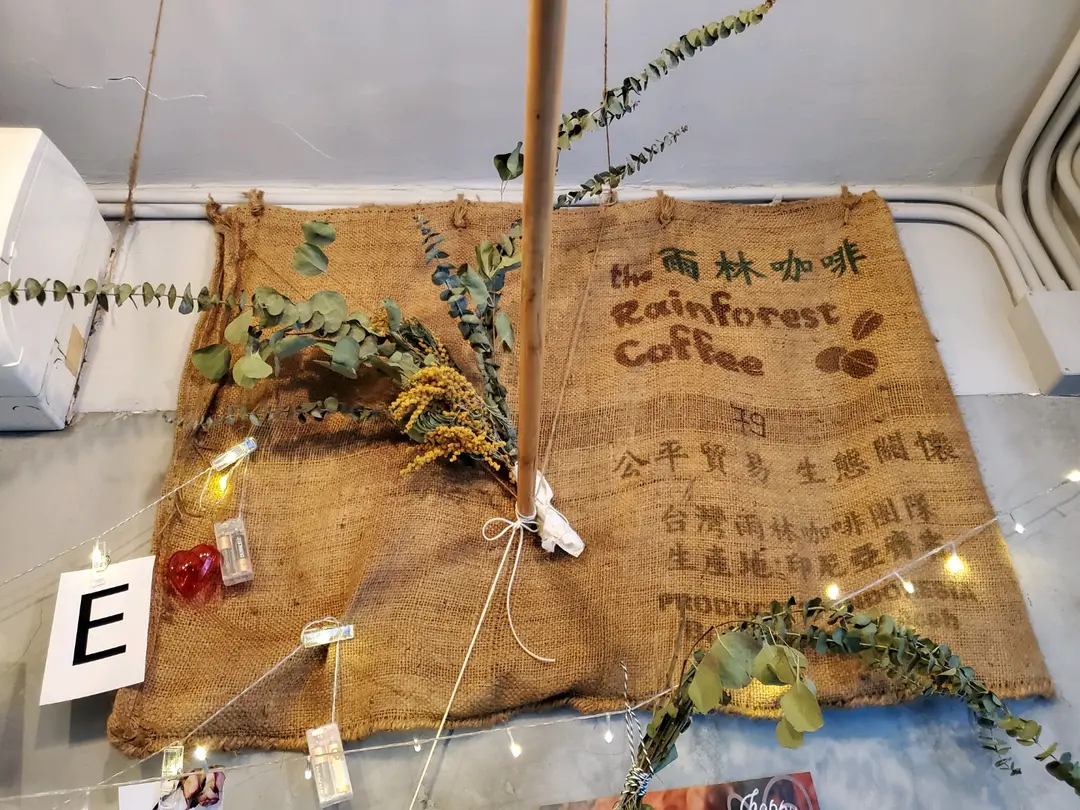 the 雨林咖啡
Rainforest
Coffee
79
公平貿易 生態關懷
台灣雨林咖啡團隊
生產地:印尼亞齊
E